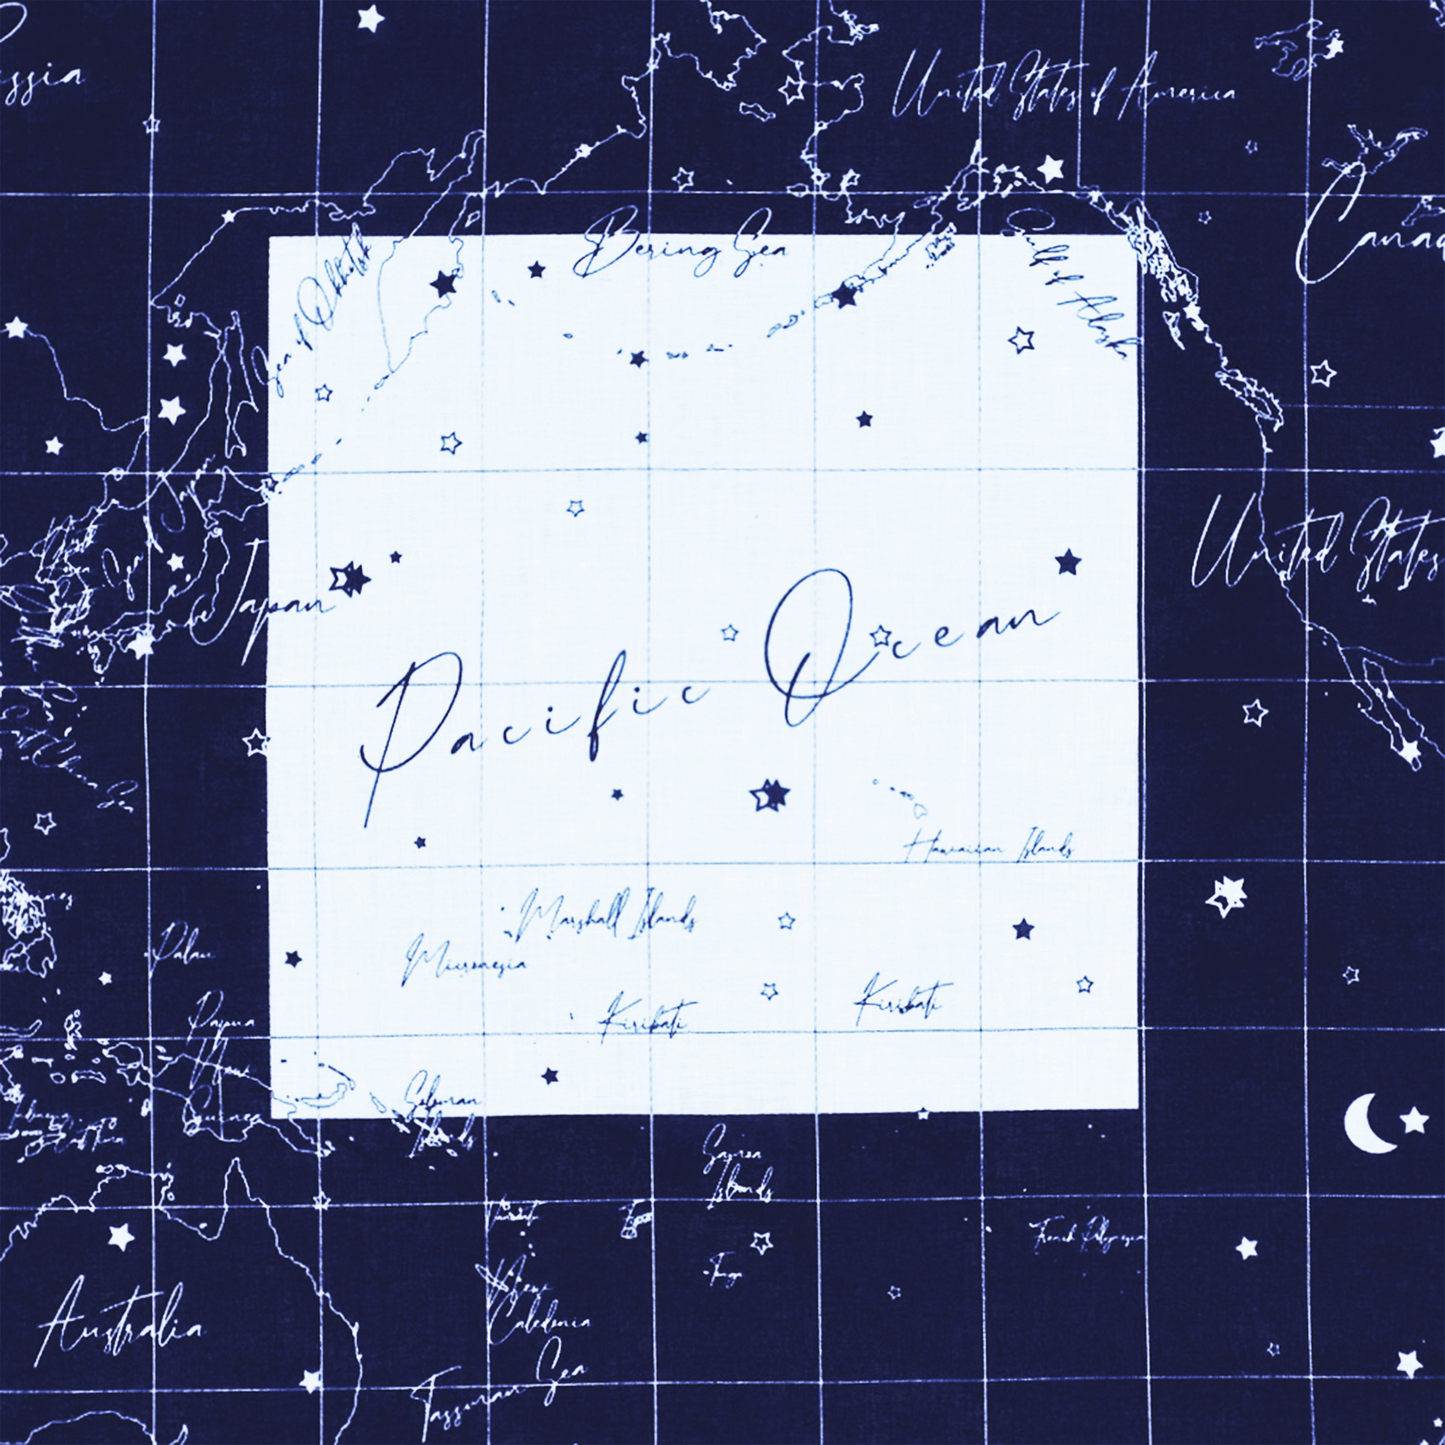 ssia
United States of America
Canad
Bering Sea
Sea of Okhotsk
Gulf of Alaska
Japan
United States
Japan
Pacific Ocean
Hawaiian Islands
Marshall Islands
Palau
Micronesia
Kiribati
Kiribati
Papua
New
Guinea
Soloman
Islands
Samoa
Islands
French Polynesia
Tonga
New
Caledonia
Australia
Tassman Sea